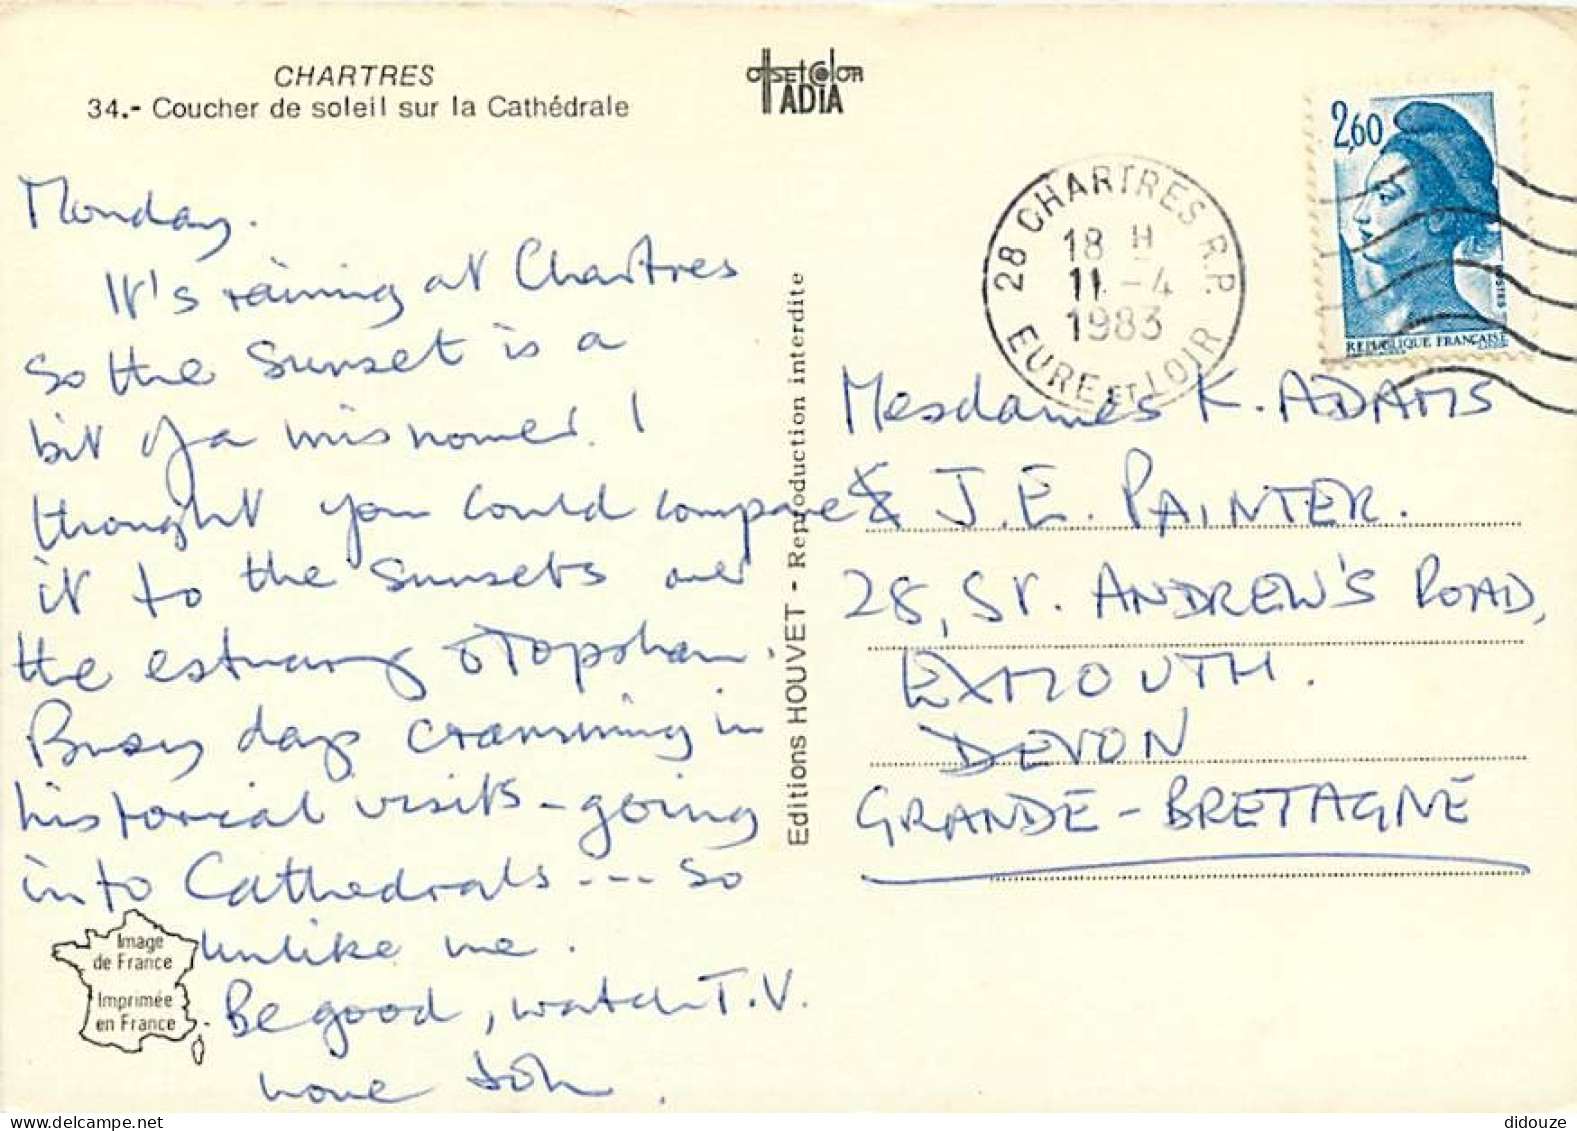 CHARTRES
34.- Coucher de soleil sur la Cathédrale
offset color
ADIA
2,60
REPUBLIQUE FRANÇAISE
POSTES
28 CHARTRES R.P.
18 H
11 -4
1983
EURE ET LOIR
Monday.
It's raining at Chartres
so the Sunset is a
bit of a misnomer. I
thought you could compare
it to the sunsets over
the estuary o Topsham.
Busy days cramming in
historical visits - going
into Cathedrals --- so
unlike me.
Be good, watch T.V.
love
Editions HOUVET - Reproduction interdite
Mesdames K. ADAMS
& J.E. PAINTER.
28, ST. ANDREW'S ROAD,
EXMOUTH.
DEVON
GRANDE-BRETAGNE
Image
de France
Imprimée
en France
didouze